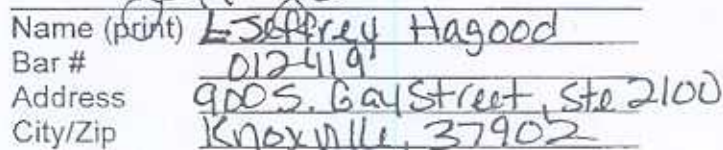 Name (print) E Jeffrey Hagood
Bar # 012419
Address 900 S. Gay Street, Ste 2100
City/Zip Knoxville, 37902